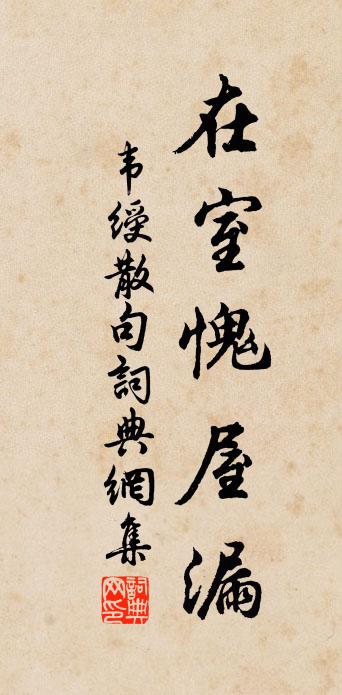 在室愧屋漏
韦绶散句詞典網集
詞典网印